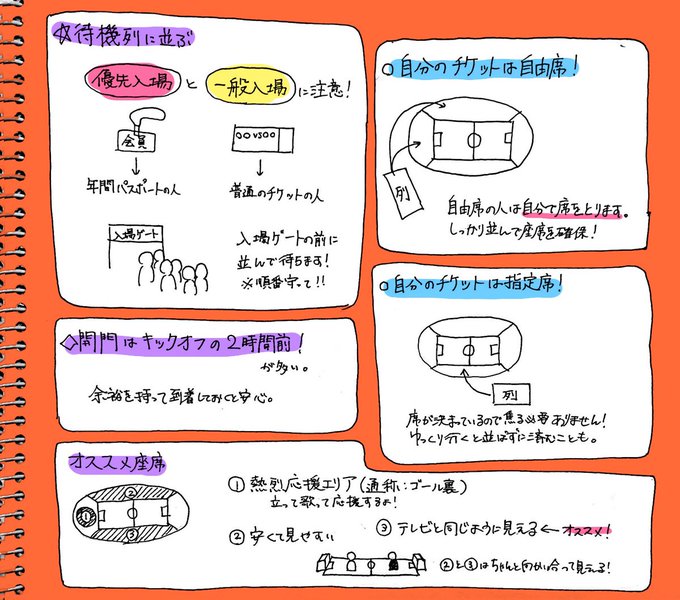 ☆待機列に並ぶ
優先入場 と 一般入場 に注意!
会員
○○VS○○
年間パスポートの人
普通のチケットの人
入場ゲート
入場ゲートの前に
並んで待ちます!
※順番守って!!
◇開門はキックオフの2時間前!
が多い。
余裕を持って到着しておくと安心。
○自分のチケットは自由席!
列
自由席の人は自分で席をとります。
しっかり並んで座席を確保!
○自分のチケットは指定席!
列
席が決まっているので焦る必要ありません!
ゆっくり行くと並ばずに済むことも。
オススメ座席
①
②
③
①熱烈応援エリア(通称:ゴール裏)
立って歌って応援するよ!
②安くて見やすい
③テレビと同じように見える←オススメ!
②と③はちゃんと向かい合って見える!